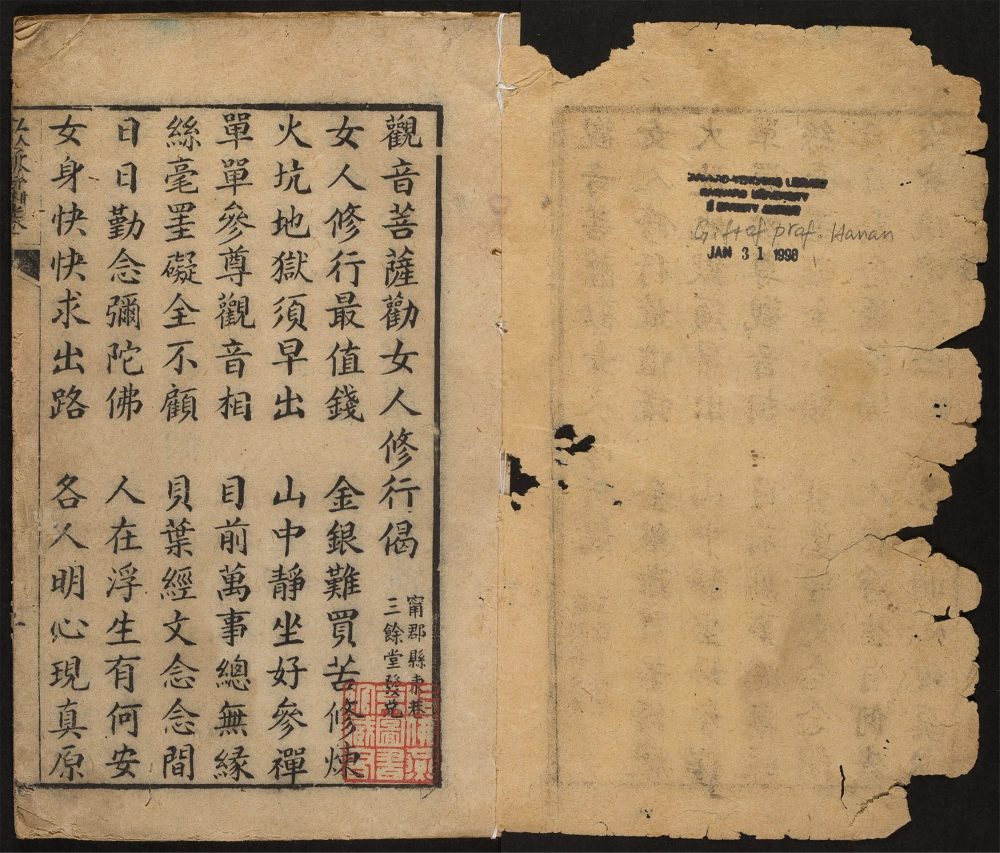 觀音菩薩勸女人修行偈
甯郡縣東巷
三餘堂發兌
女人修行最值錢 金銀難買苦修煉
火坑地獄須早出 山中靜坐好參禪
單單參尊觀音相 目前萬事總無緣
絲毫罣礙全不顧 貝葉經文念念間
日日勤念彌陀佛 人在浮生有何安
女身快快求出路 各人明心現真原
HARVARD-YENCHING LIBRARY
HARVARD UNIVERSITY
Gift of prof. Hanan
JAN 31 1998